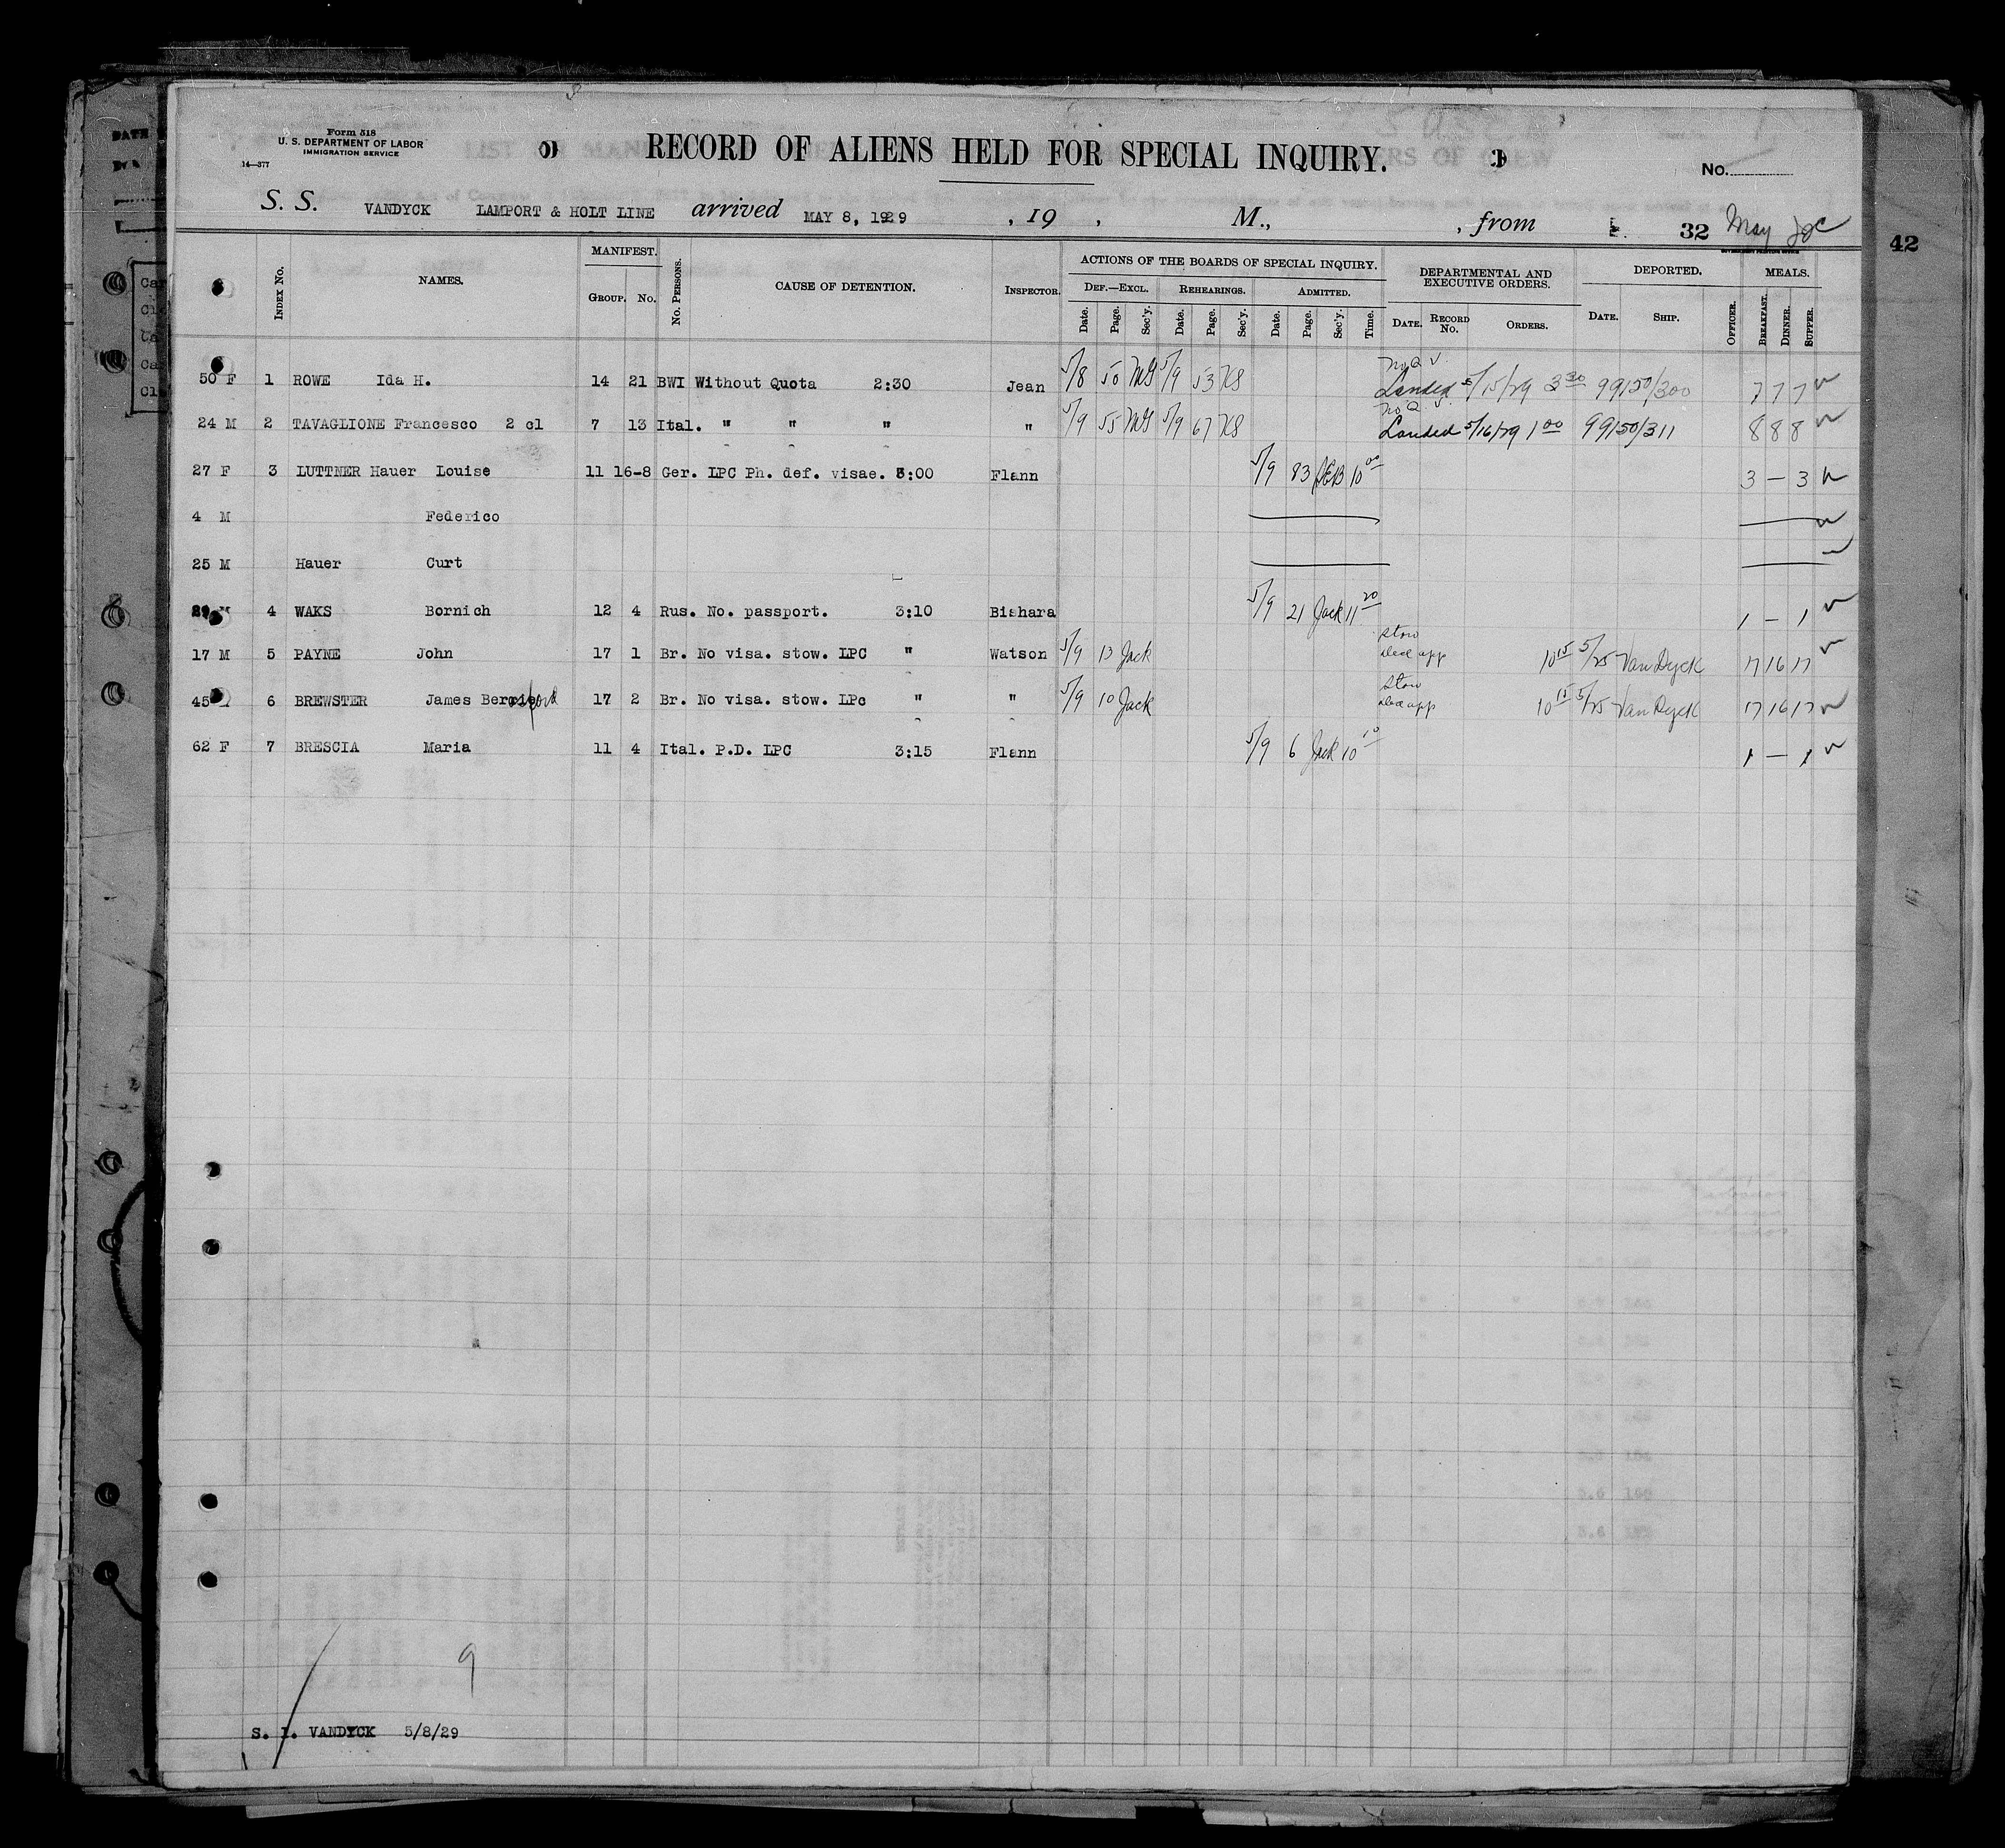 Form 518
U. S. DEPARTMENT OF LABOR
IMMIGRATION SERVICE
14—377
RECORD OF ALIENS HELD FOR SPECIAL INQUIRY.
No.
S. S. VANDYCK LAMPORT & HOLT LINE arrived MAY 8, 1929 , 19 , M., , from 32 May
42
INDEX No. NAMES. MANIFEST. GROUP. No. No. PERSONS. CAUSE OF DETENTION. INSPECTOR.
ACTIONS OF THE BOARDS OF SPECIAL INQUIRY.
DEF.—EXCL. Date. Page. Sec'y. REHEARINGS. Date. Page. Sec'y. ADMITTED. Date. Page. Sec'y. Time.
DEPARTMENTAL AND EXECUTIVE ORDERS. DATE. RECORD No. ORDERS.
DEPORTED. DATE. SHIP. OFFICER.
MEALS. BREAKFAST. DINNER. SUPPER.
No Q V
50 F 1 ROWE Ida H. 14 21 BWI Without Quota 2:30 Jean 5/8 50 MG 5/9 53 KS Landed 5/15/29 3 30 99150/300 7 7 7
No Q
24 M 2 TAVAGLIONE Francesco 2 cl 7 13 Ital. " " " " 5/9 55 MG 5/9 67 KS Landed 5/16/29 1 00 99150/311 8 8 8
27 F 3 LUTTNER Hauer Louise 11 16-8 Ger. LPC Ph. def. visae. 3:00 Flann 5/9 83 10 00 3 — 3
4 M Federico
25 M Hauer Curt
4 WAKS Bornich 12 4 Rus. No. passport. 3:10 Bishara 5/9 21 Jack 11 20 1 — 1
Stow
17 M 5 PAYNE John 17 1 Br. No visa. stow. LPC " Watson 5/9 13 Jack app 10 15 5/25 Van Dyck 17 16 17
Stow
45 6 BREWSTER James 17 2 Br. No visa. stow. LPc " " 5/9 10 Jack app 10 15 5/25 Van Dyck 17 16 17
62 F 7 BRESCIA Maria 11 4 Ital. P.D. LPC 3:15 Flann 5/9 6 Jack 10 10 1 — 1
9
S. I. VANDYCK 5/8/29